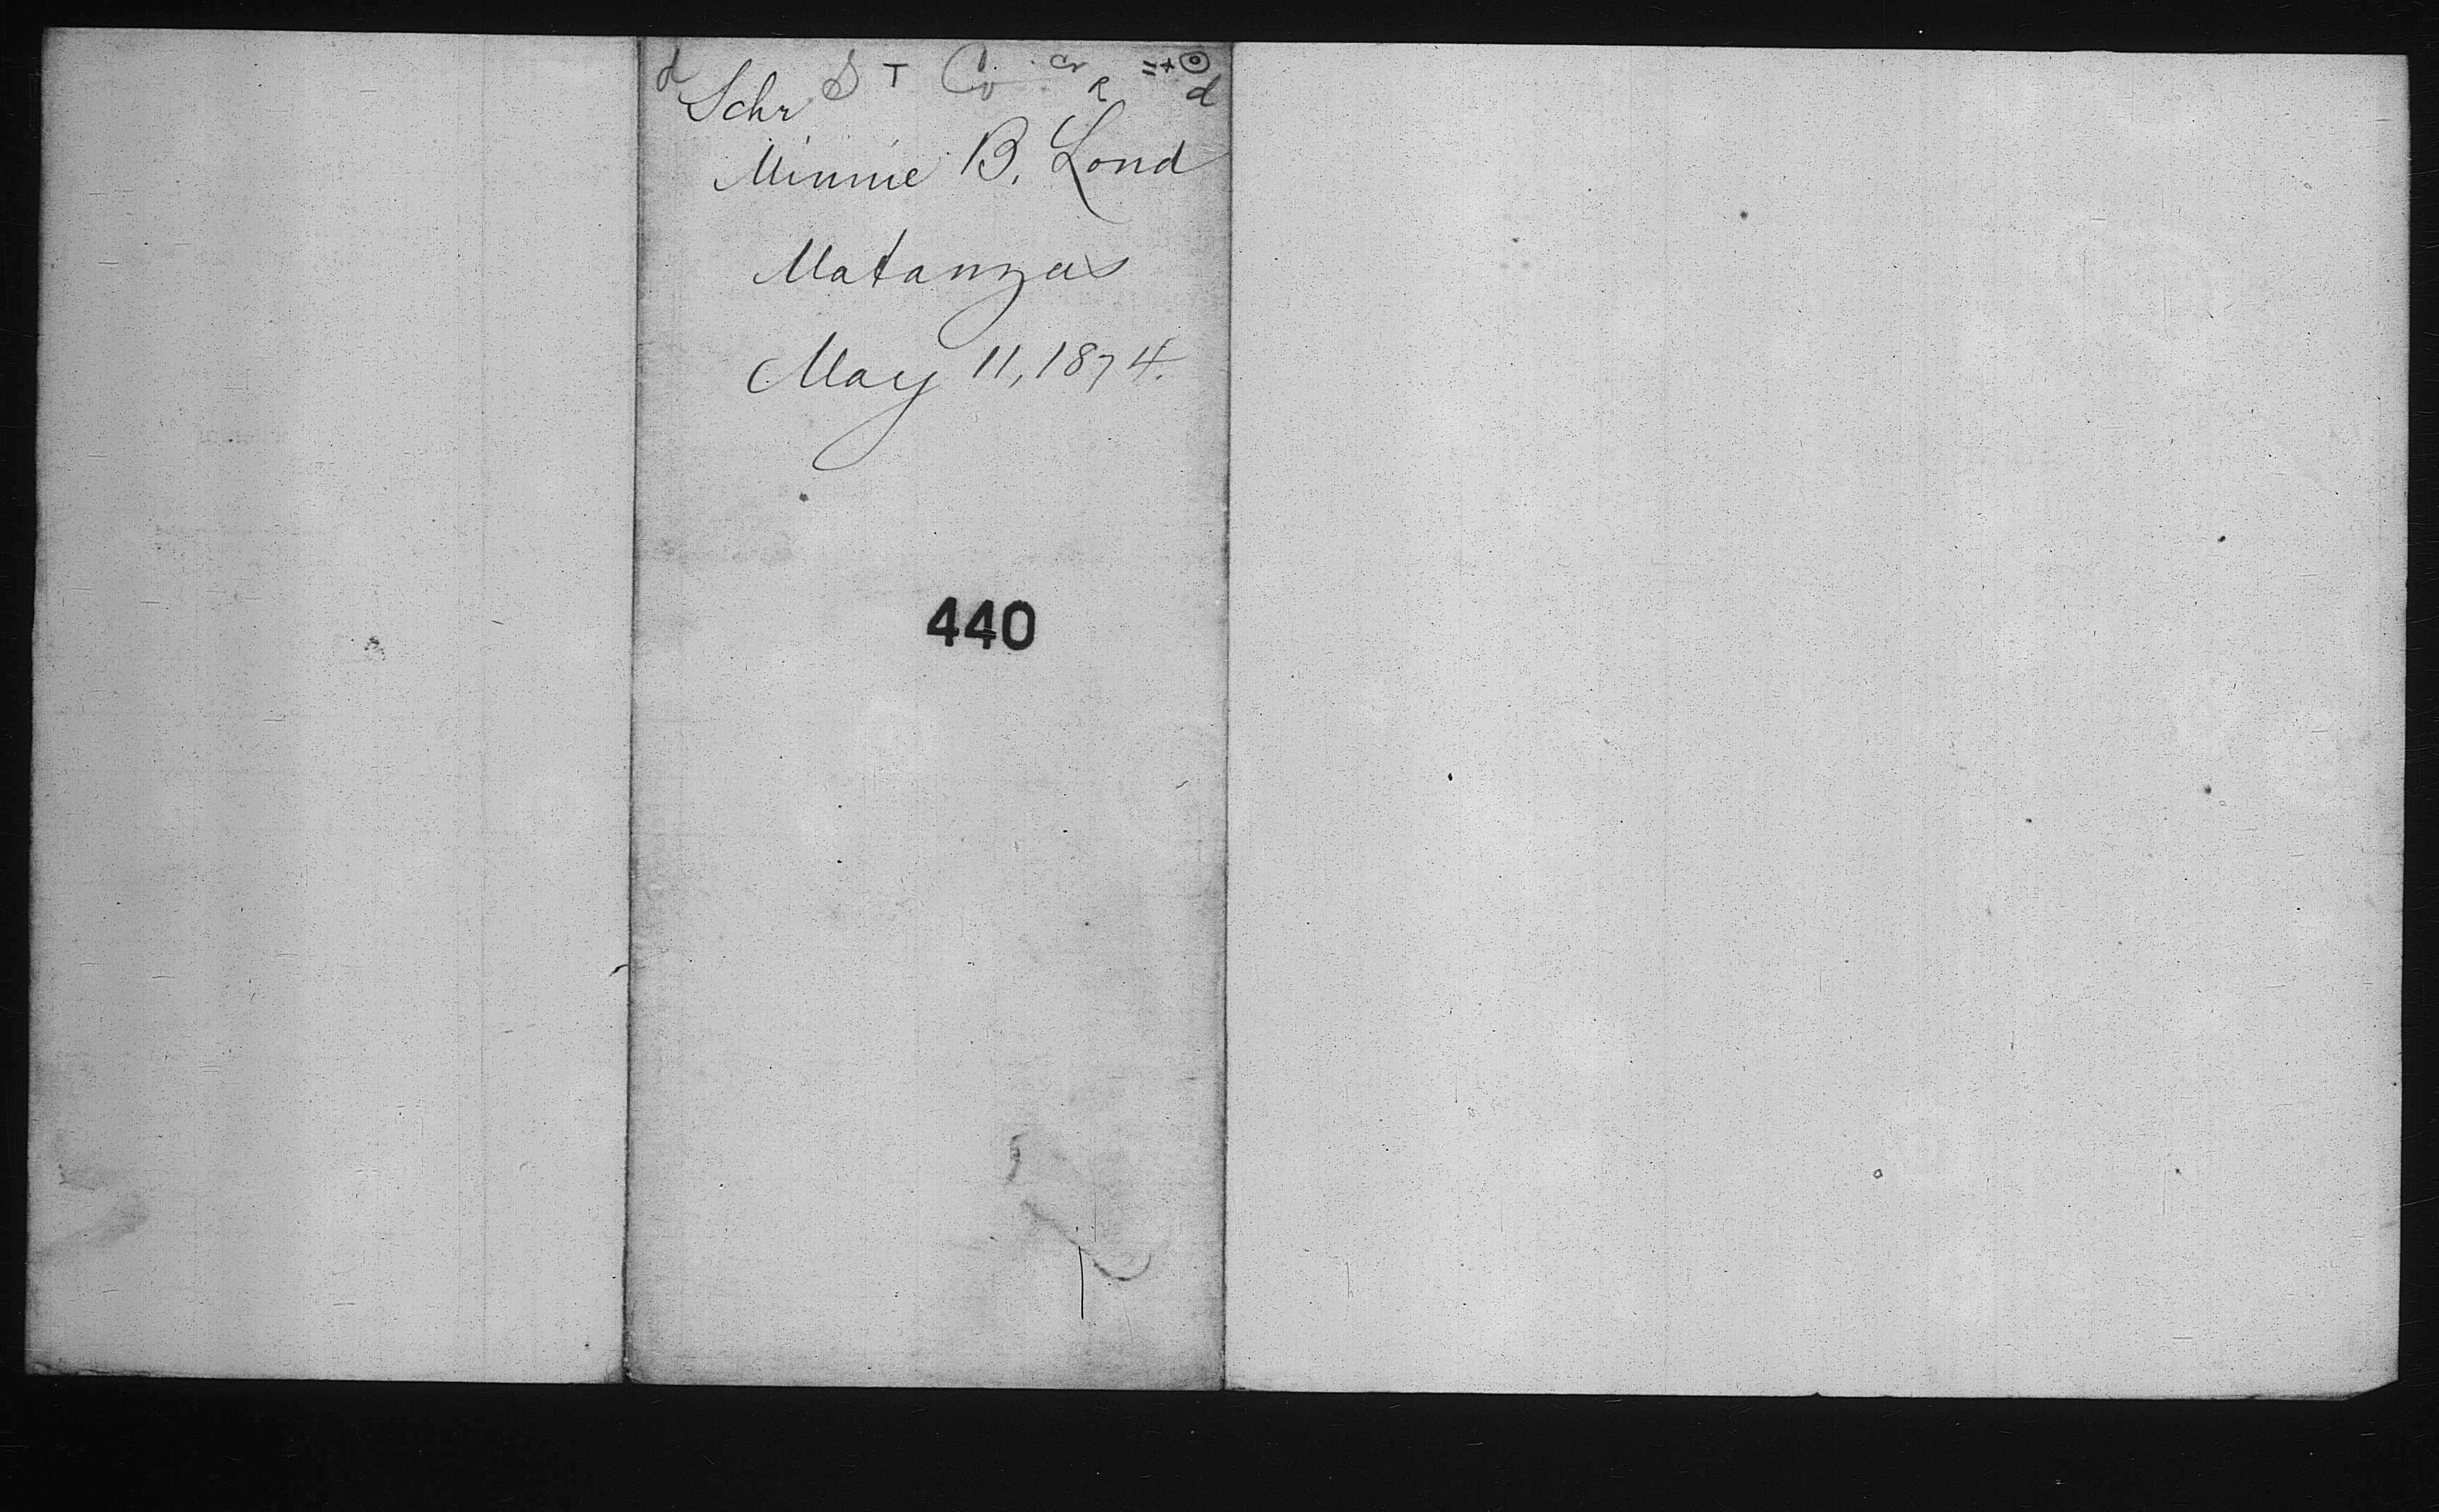 d S T Co cr R =+ d
Schr
Minnie B. Lond
Matanzas
May 11, 1874.
440